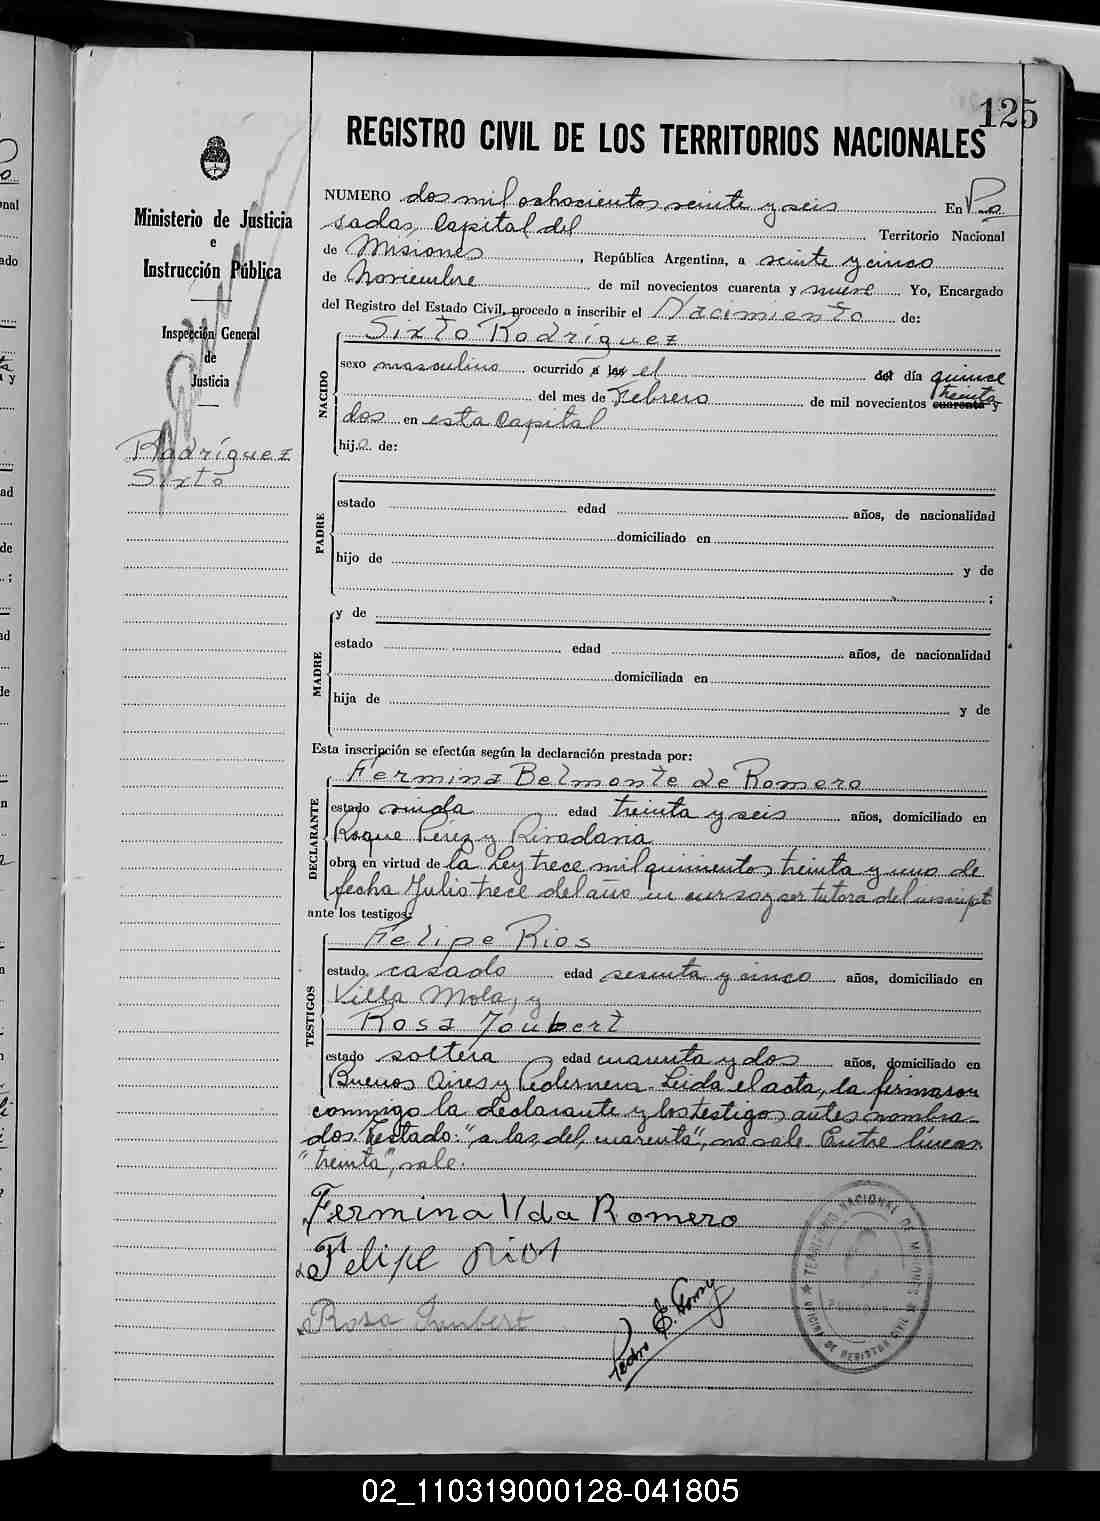 125
REGISTRO CIVIL DE LOS TERRITORIOS NACIONALES
Ministerio de Justicia
e
Instrucción Pública
Inspección General
de
Justicia
Rodríguez
Sixto
NUMERO dos mil ochocientos veinte y seis En Po
sadas, Capital del Territorio Nacional
de Misiones, República Argentina, a veinte y cinco
de Noviembre de mil novecientos cuarenta y nueve Yo, Encargado
del Registro del Estado Civil, procedo a inscribir el Nacimiento de:
Sixto Rodríguez
NACIDO
sexo masculino ocurrido a las el del día quince
treinta
del mes de Febrero de mil novecientos cuarenta y
dos en esta Capital
hijo de:
PADRE
estado edad años, de nacionalidad
domiciliado en
hijo de y de
;
MADRE
y de
estado edad años, de nacionalidad
domiciliada en
hija de y de
Esta inscripción se efectúa según la declaración prestada por:
Fermina Belmonte de Romero
DECLARANTE
estado viuda edad treinta y seis años, domiciliado en
Roque Pérez y Rivadavia
obra en virtud de la Ley trece mil quinientos treinta y uno de
fecha Julio trece del año en curso y ser tutora del inscripto
ante los testigos:
Felipe Rios
TESTIGOS
estado casado edad sesenta y cinco años, domiciliado en
Villa Mola, y
Rosa Joubert
estado soltera edad cuarenta y dos años, domiciliado en
Buenos Aires y Pedernera. Leida el acta, la firmaron
conmigo la declarante y los testigos antes nombra-
dos. Testado: "a las, del, cuarenta", no vale. Entre líneas
"treinta", vale.
Fermina Vda Romero
Felipe Rios
Rosa Joubert
Pedro E.
TERRITORIO NACIONAL DE MISIONES
OFICINA DE REGISTRO CIVIL
POSADAS
02_110319000128-041805